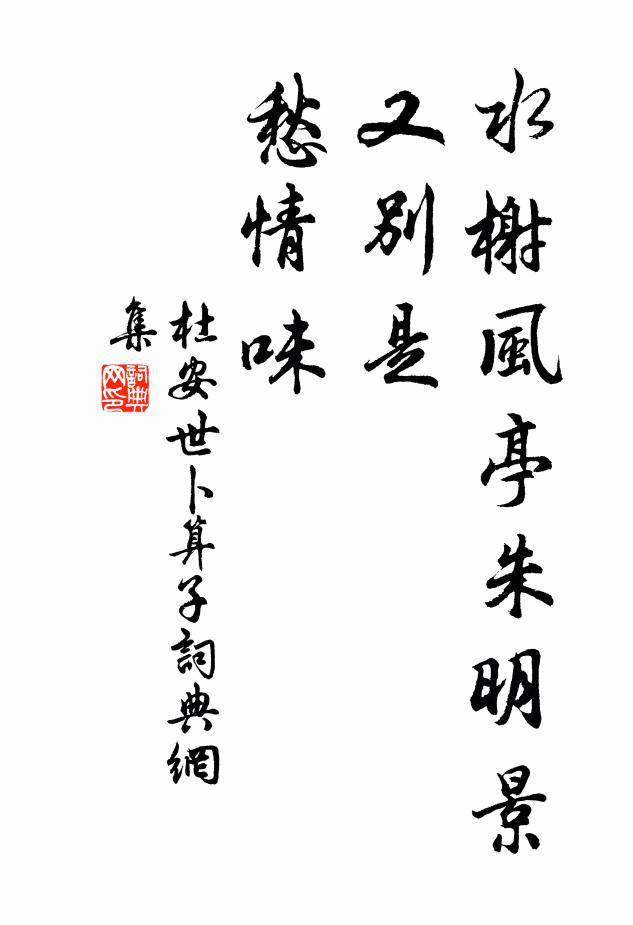 水榭風亭朱明景
又別是
愁情味
杜安世卜算子詞典網
集
詞典
网印